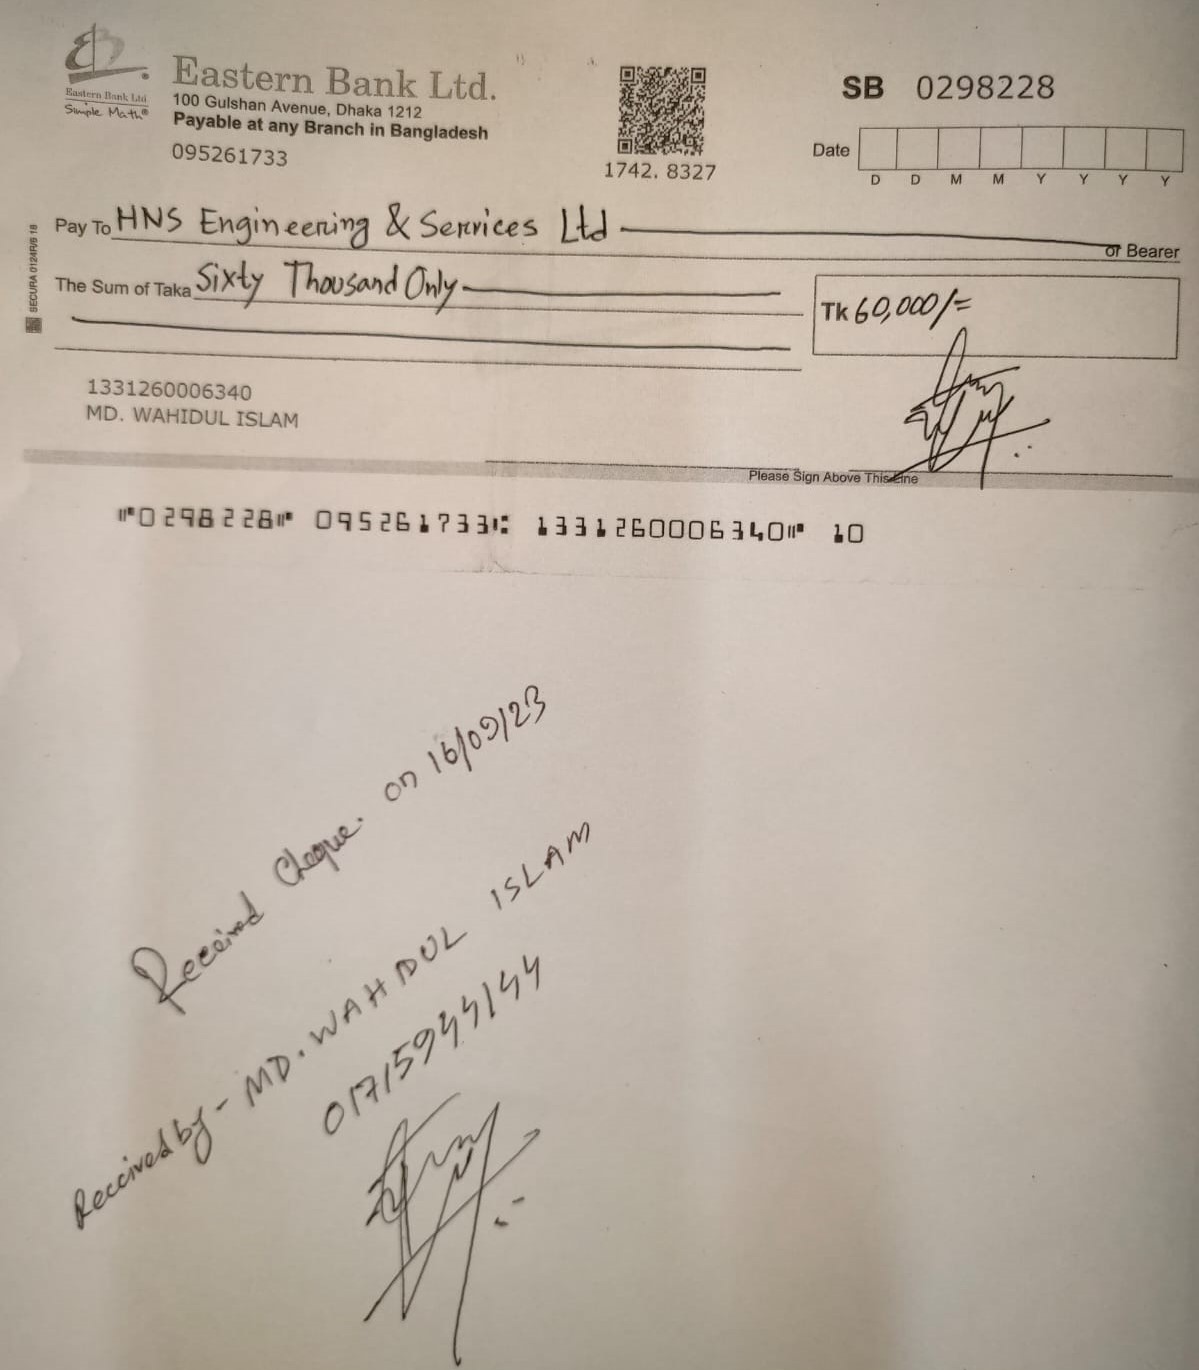 Eastern Bank Ltd.
Simple Math®
Eastern Bank Ltd.
100 Gulshan Avenue, Dhaka 1212
Payable at any Branch in Bangladesh
095261733
1742. 8327
SB 0298228
Date
D D M M Y Y Y Y
SECURA 0124RVB 18
Pay To HNS Engineering & Services Ltd or Bearer
The Sum of Taka Sixty Thousand Only
Tk 60,000/=
1331260006340
MD. WAHIDUL ISLAM
Please Sign Above This Line
⑈0298228⑈ 095261733⑆ 1331260006340⑈ 10
Received Cheque. on 16/09/23
Received by - MD. WAHIDUL ISLAM
01715944144